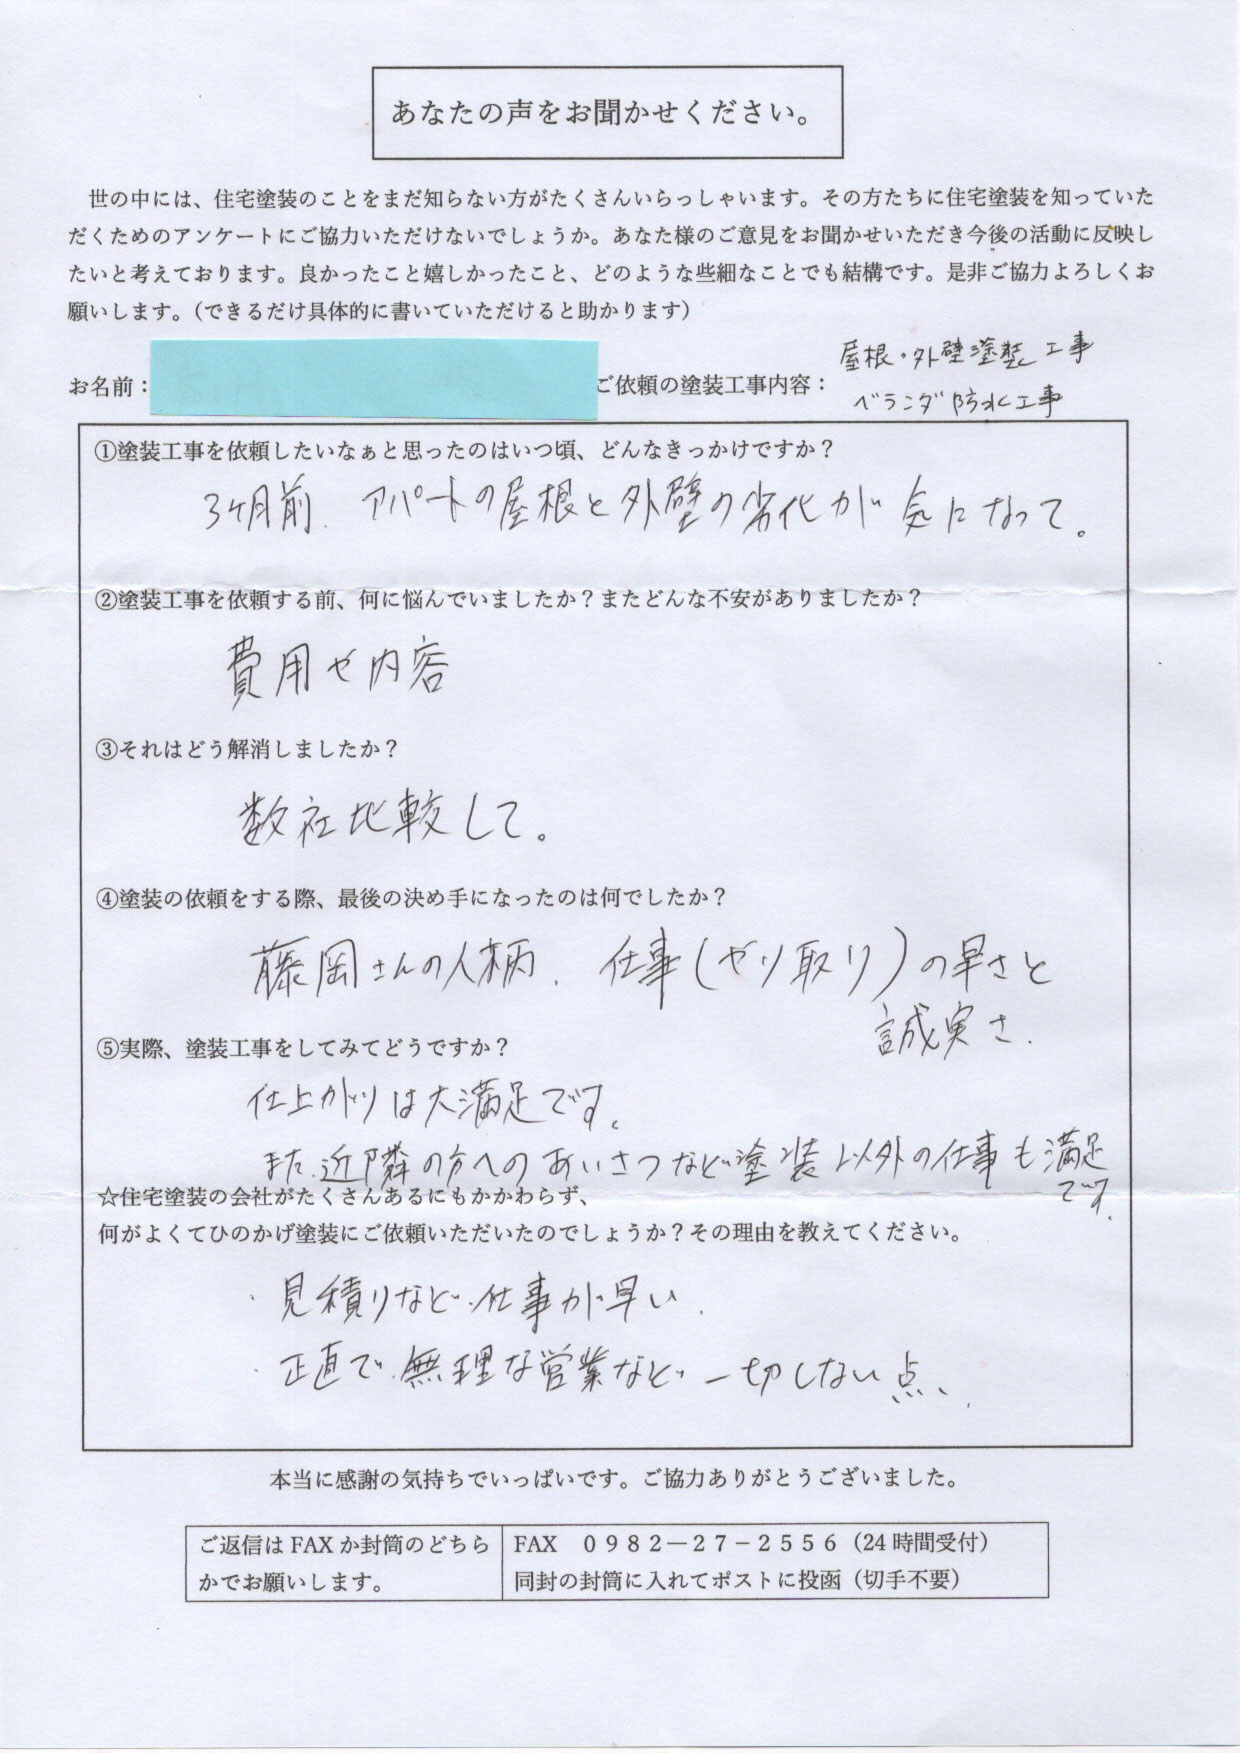 あなたの声をお聞かせください。
世の中には、住宅塗装のことをまだ知らない方がたくさんいらっしゃいます。その方たちに住宅塗装を知っていた
だくためのアンケートにご協力いただけないでしょうか。あなた様のご意見をお聞かせいただき今後の活動に反映し
たいと考えております。良かったこと嬉しかったこと、どのような些細なことでも結構です。是非ご協力よろしくお
願いします。（できるだけ具体的に書いていただけると助かります）
お名前： ご依頼の塗装工事内容： 屋根・外壁塗装工事
ベランダ防水工事
①塗装工事を依頼したいなぁと思ったのはいつ頃、どんなきっかけですか？
3ヶ月前、アパートの屋根と外壁の劣化が気になって。
②塗装工事を依頼する前、何に悩んでいましたか？またどんな不安がありましたか？
費用や内容
③それはどう解消しましたか？
数社比較して。
④塗装の依頼をする際、最後の決め手になったのは何でしたか？
藤岡さんの人柄、仕事（やり取り）の早さと
誠実さ、
⑤実際、塗装工事をしてみてどうですか？
仕上がりは大満足です。
また、近隣の方へのあいさつなど塗装以外の仕事も満足
です。
☆住宅塗装の会社がたくさんあるにもかかわらず、
何がよくてひのかげ塗装にご依頼いただいたのでしょうか？その理由を教えてください。
・見積りなど、仕事が早い、
・正直で、無理な営業など一切しない点、
本当に感謝の気持ちでいっぱいです。ご協力ありがとうございました。
ご返信は FAX か封筒のどちら
かでお願いします。
FAX ０９８２－２７－２５５６（24 時間受付）
同封の封筒に入れてポストに投函（切手不要）